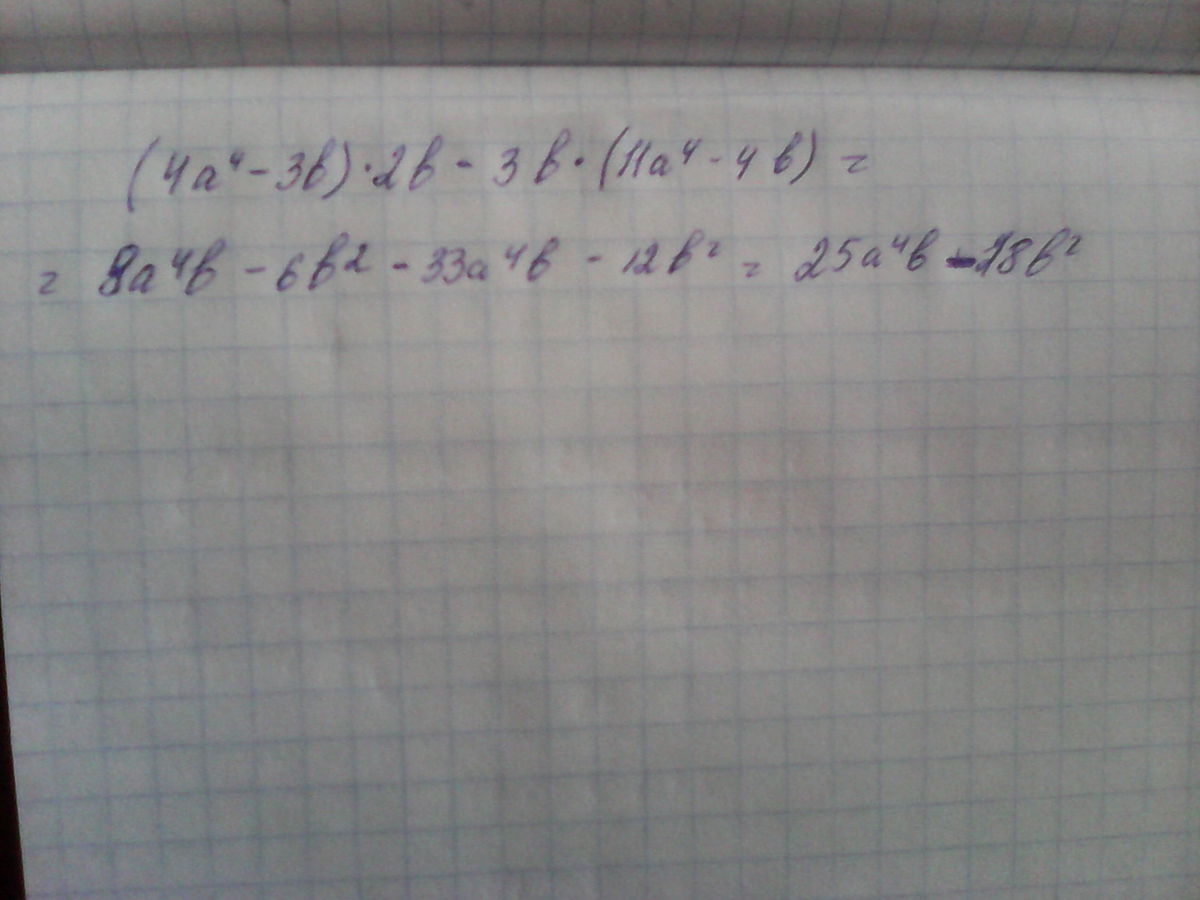 (4a⁴ - 3b) · 2b - 3b · (11a⁴ - 4b) =
= 8a⁴b - 6b² - 33a⁴b - 12b² = 25a⁴b - 18b²